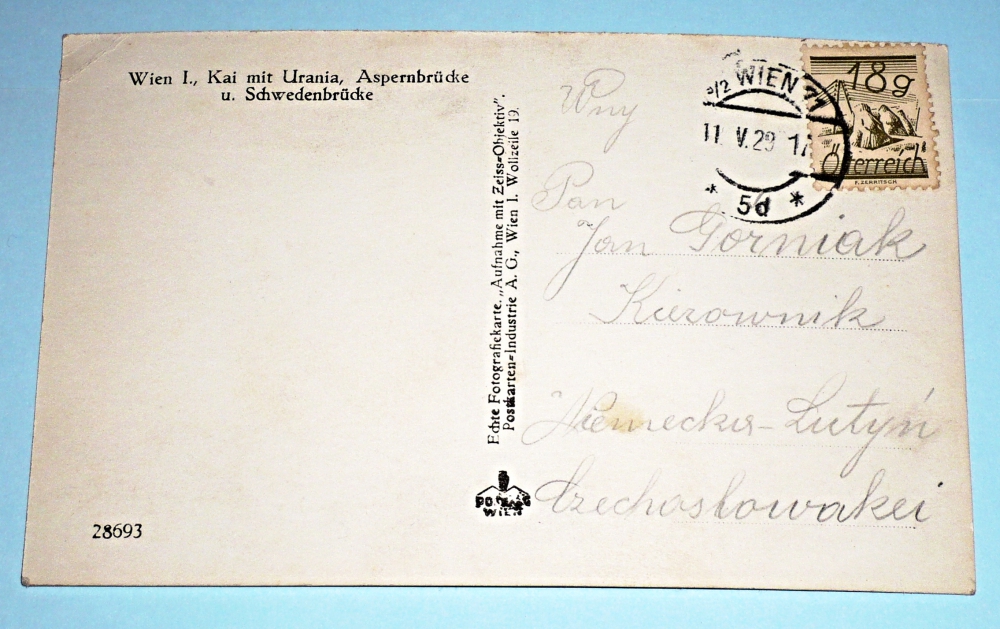 Wien I., Kai mit Urania, Aspernbrücke
u. Schwedenbrücke
28693
Echte Fotografiekarte. „Aufnahme mit Zeiss-Objektiv".
Postkarten-Industrie A. G., Wien I. Wollzeile 19.
WIEN
WIEN 71
11. V. 29 17
* 5d *
18g
Österreich
Wny
Pan
Jan Gorniak
Kierownik
Niemecka-Lutyń
Czechosłowakei